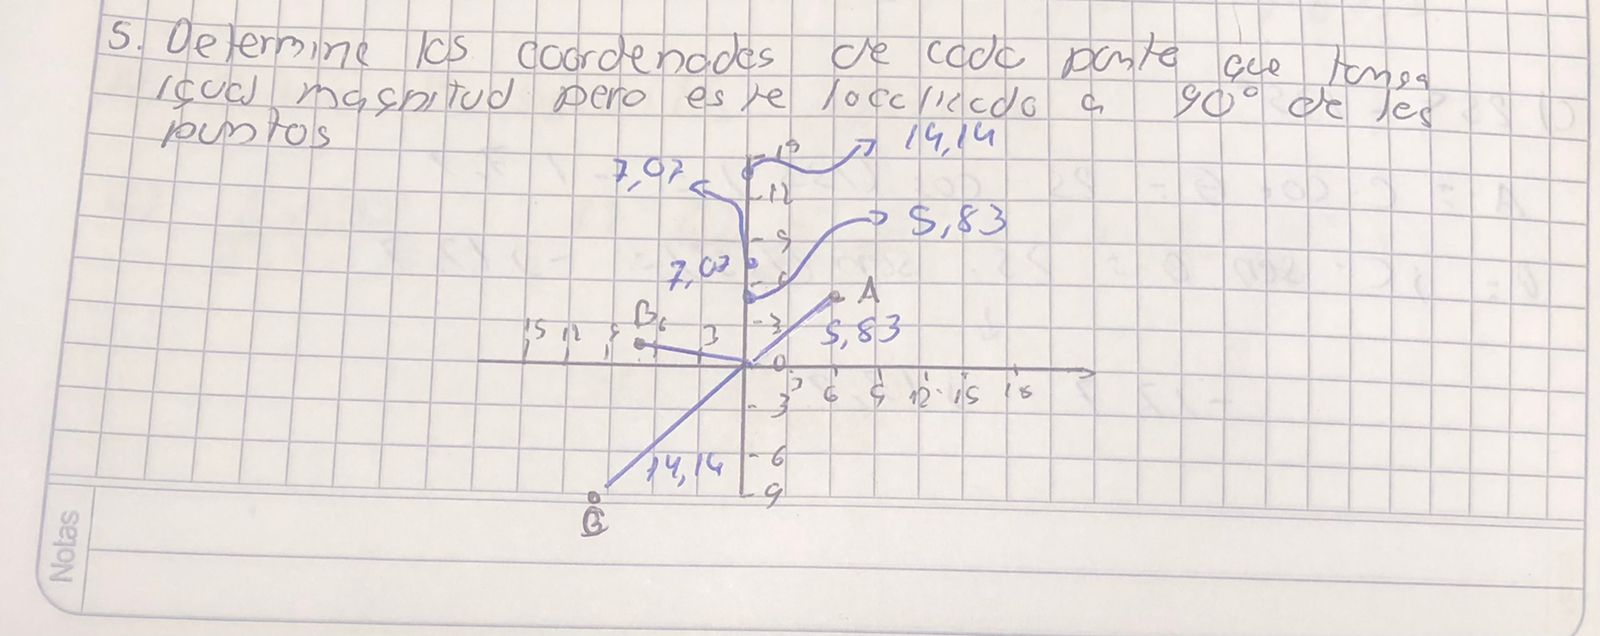 5. Determine las coordenadas de cada punto que tenga
igual magnitud pero este localizado a 90° de los
puntos
14,14
7,07
12
9
5,83
7,07
6
A
3
5,83
B
15 12 9 6 3
0
3 6 9 12 15 18
3
14,14
6
9
B
Notas